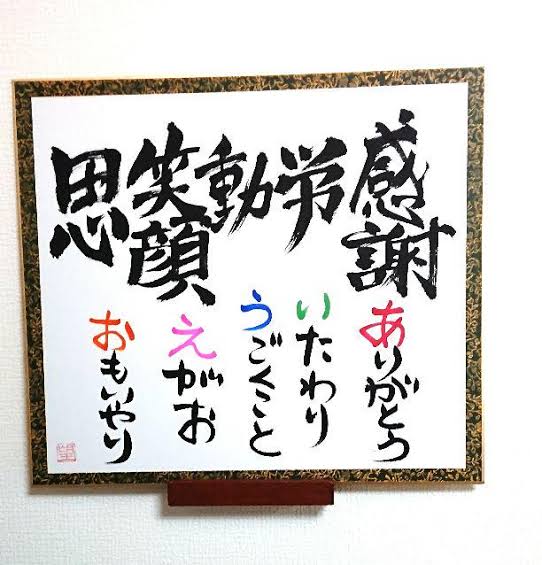 感謝
ありがとう
労
いたわり
動
うごくこと
笑顔
えがお
思
おもいやり